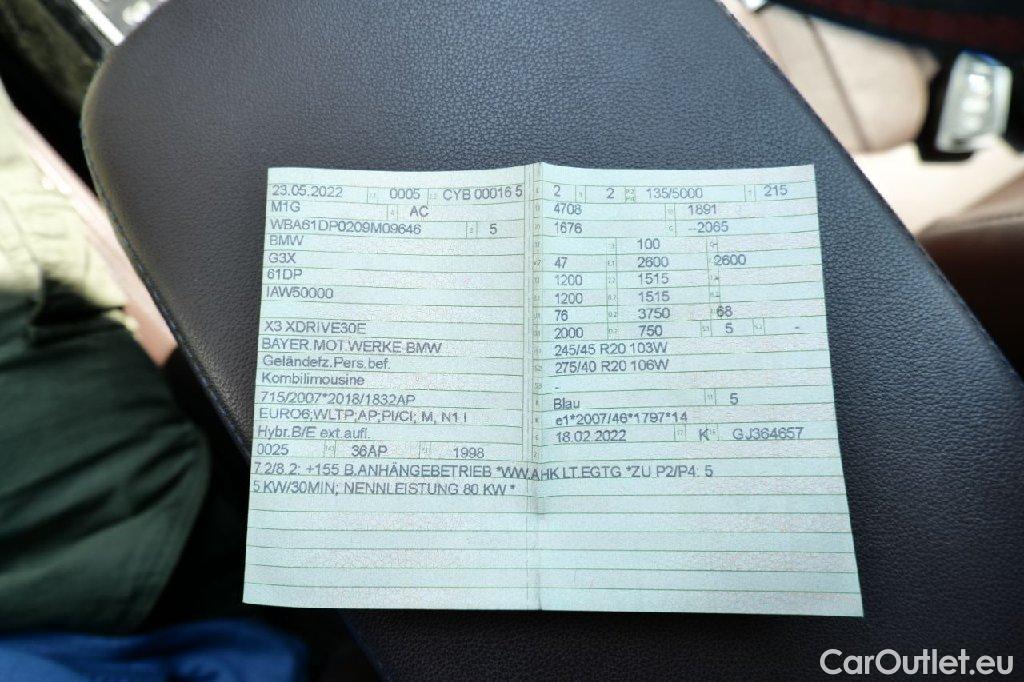 23.05.2022 0005 CYB 00016 5
M1G AC
WBA61DP0209M09646 5
BMW
G3X
61DP
IAW50000
X3 XDRIVE30E
BAYER.MOT.WERKE-BMW
Geländefz.Pers.bef.
Kombilimousine
715/2007*2018/1832AP
EURO6;WLTP;AP;PI/CI; M, N1 I
Hybr.B/E ext.aufl.
0025 36AP 1998
2 2 135/5000 215
4708 1891
1676 2065
100 -
47 2600 2600
1200 1515
1200 1515
76 3750 68
2000 750 5 -
245/45 R20 103W
275/40 R20 106W
-
Blau 5
e1*2007/46*1797*14
18.02.2022 K GJ364657
7.2/8.2: +155 B.ANHÄNGEBETRIEB *WW.AHK LT.EGTG *ZU P2/P4: 5
5 KW/30MIN; NENNLEISTUNG 80 KW *
CarOutlet.eu